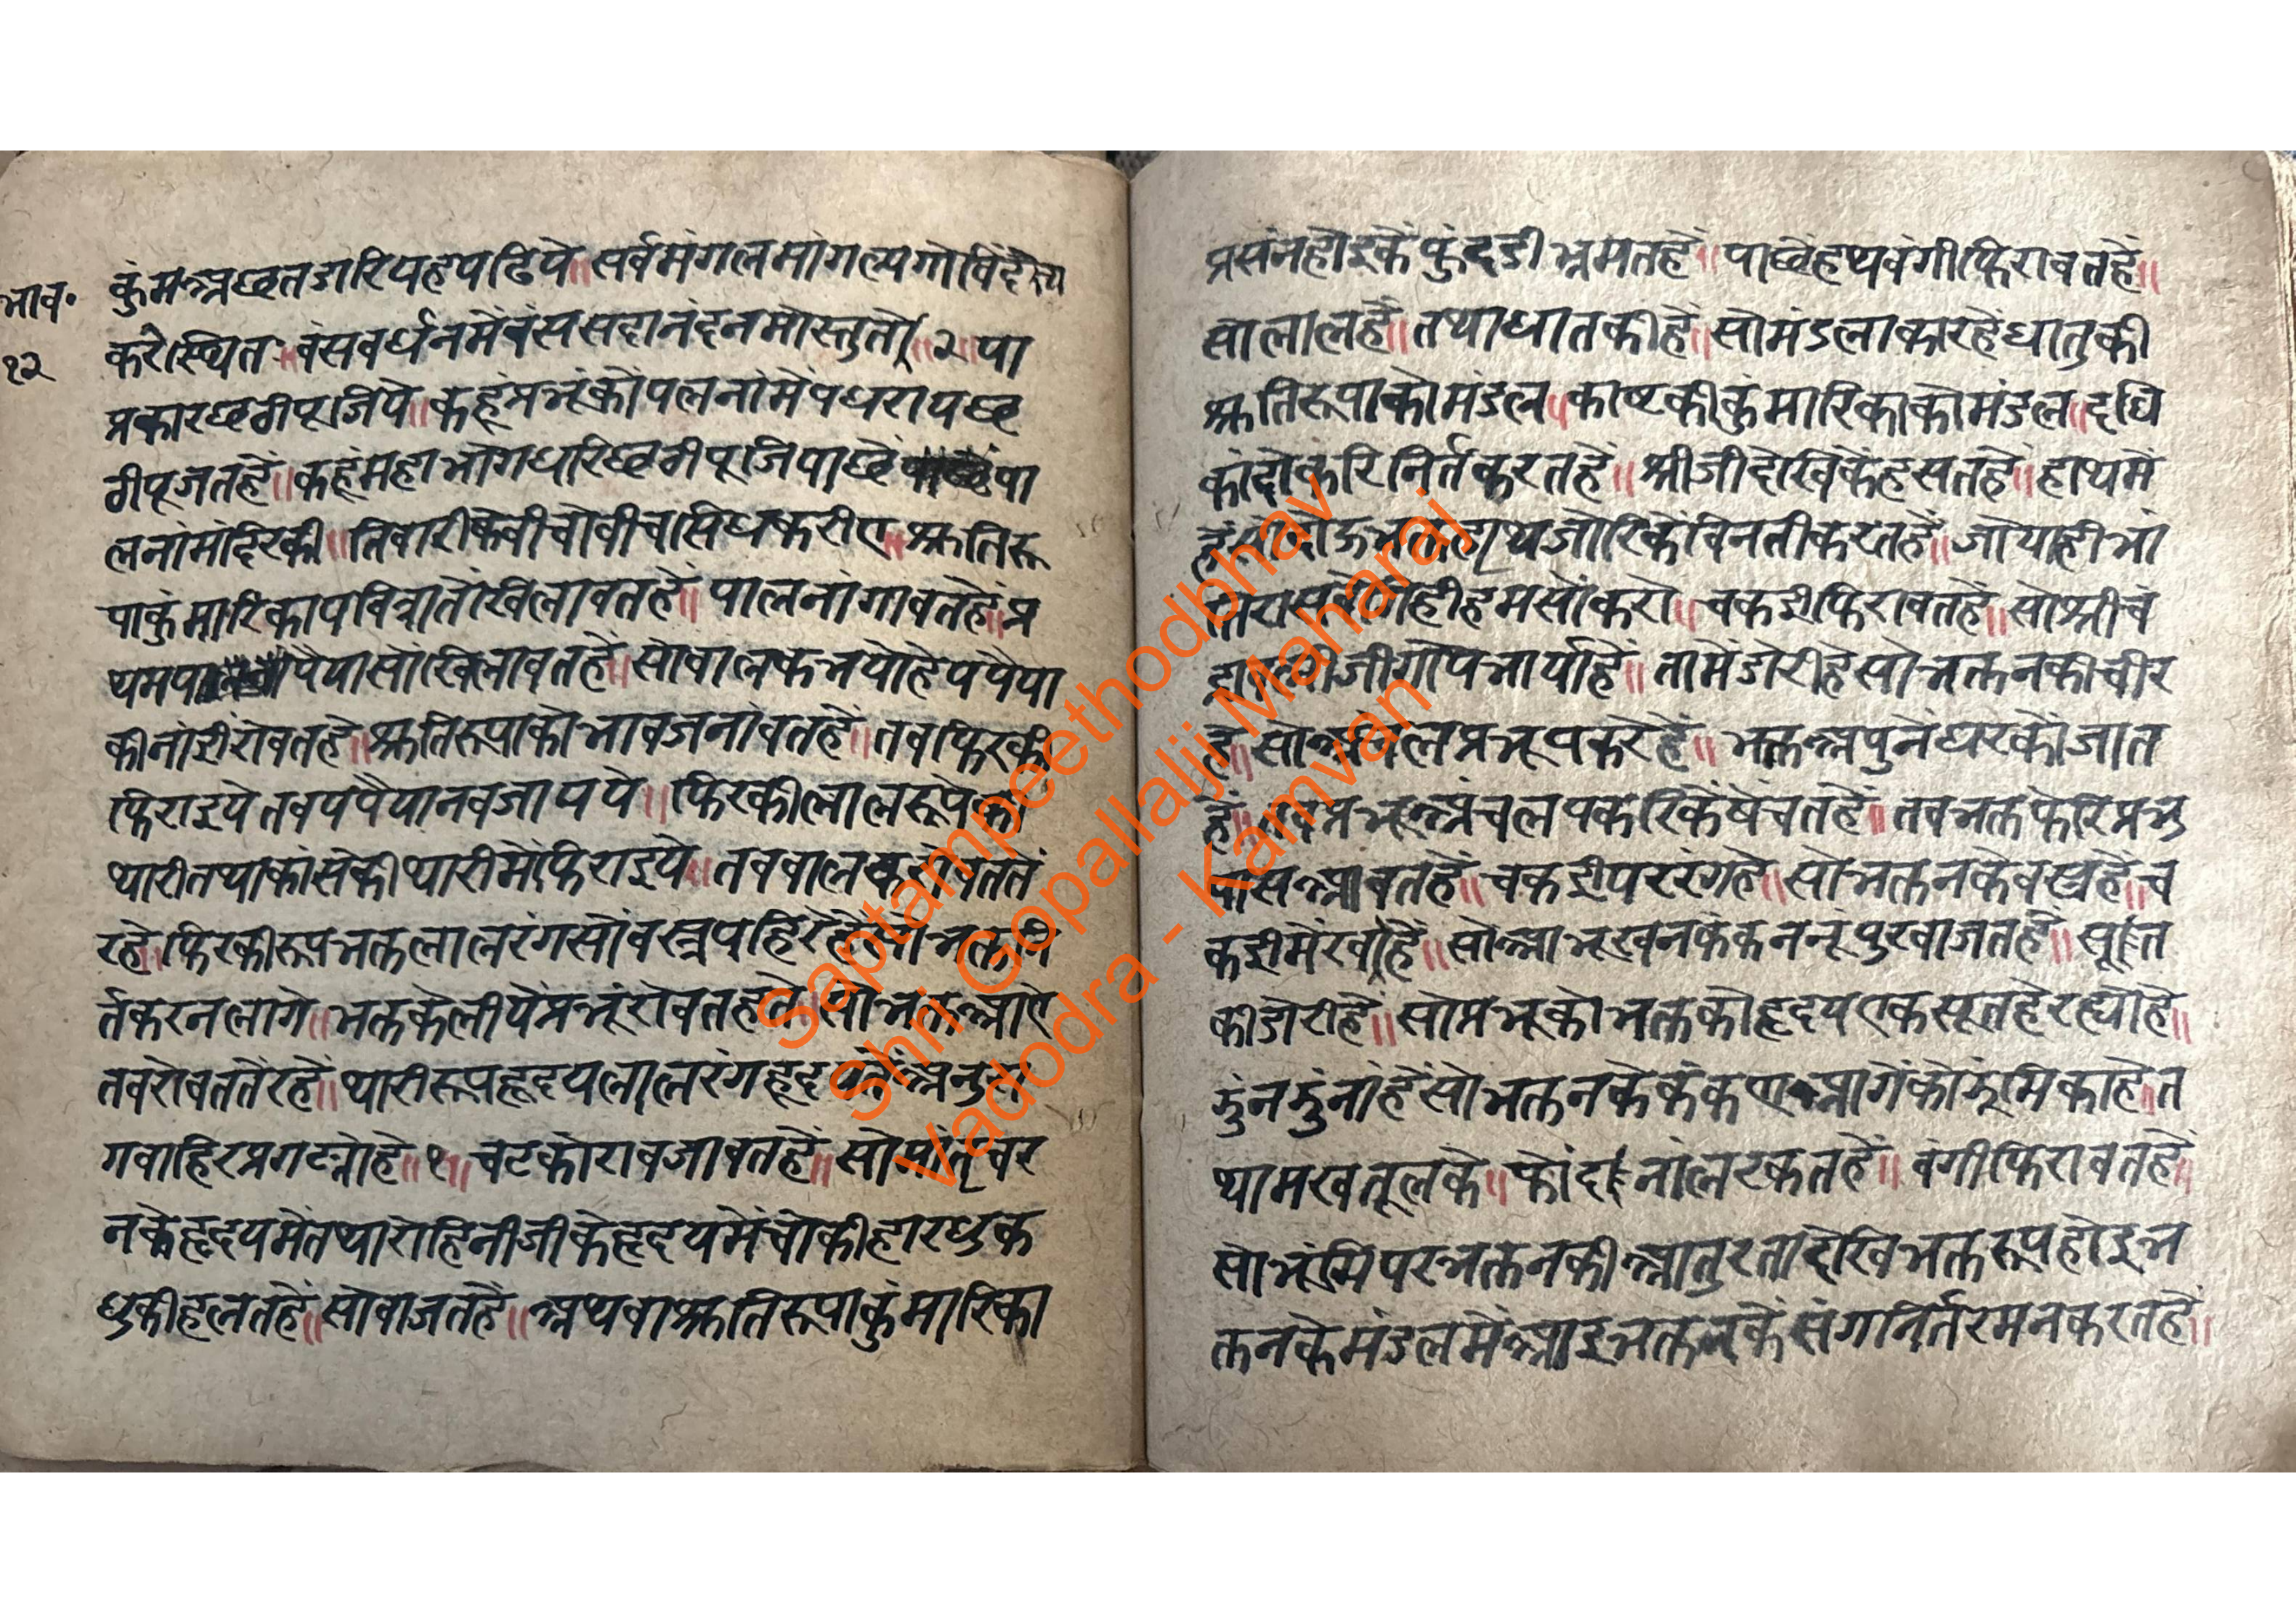 भाव॰
१२
कुंमअछतडारियहपढिये॥सर्वमंगलमांगल्यगोविंदस्य
करेस्थित॥वंसवर्धनमेवंससदानंदनमोस्तुतो॥२॥पा
प्रकारछठीपूजिये॥कहूंप्रभूंकोपलनांमेपधरायछ
ठीपूजतहें॥कहूंमहाभोगधरिछठीपूजिपाछेंपा
लनांमंदिरकी॥तिवारीकेवीचोवीचसिधकरीए॥श्रुतिरू
पाकुंमारिकापवित्रातोखिलावतहें॥पालनांगावतहें॥प्र
थमपपैयासोंखिलावतहें॥सोवालकभयोहेपपैया
कीनांईरोवतहे॥श्रुतिरूपाकोभावजनांवतहें॥तवफिरकी
फिराइयेतवपपैयानवजायये॥फिरकीलालरूपेकी
थारीतथाकांसेकीथारीमेंफिराइये॥तववालकरोवततें
रहे॥फिरकीरूपभक्तलालरंगसोंवस्त्रपहिरेहेंसोभक्तनि
र्तकरनलागे॥भक्तकेलीयेंप्रभूंरोवतहते॥सोभक्तआऐ
तवरोवततेंरहें॥थारीरूपहृदयलालरंगहृदयतेंअनुरा
गवाहिरप्रगट्योहे॥१॥चटकोरावजावतहें॥सोमातृचर
नकेहृदयमेतथारोहिनीजीकेहृदयमेंचोकीहारधुक
धुकीहलतहें॥सोवाजतहें॥अथवाश्रुतिरूपाकुंमारिका
प्रसंनहोइकेफुंदडीभ्रमतहें॥पाछेंहथवंगीफिरावतहें॥
सोलालहें॥तथाधातकीहें॥सोमंडलाकारहेंधातुकी
श्रुतिरूपाकोमंडल॥काष्टकीकुंमारिकाकोमंडल॥दधि
कांदोकरिनिर्तकरतहें॥श्रीजीदेखिकेंहसतहें॥हाथमें
हेंसोदोऊभक्तहाथजोरिकेंविनतीकरतहें॥जोयाहीभां
तिरासलीलाहीहमसोंकरो॥चकडीफिरावतहें॥सोश्रीचं
द्रावलीजीगोपभार्याहें॥तामेंडोरीहेसोभक्तनकीचीर
हें॥सोअंचलप्रभूपकरेहें॥भक्तअपुनेघरकोंजात
हें॥तवप्रभूअंचलपकरिकेंषेंचतहें॥तवभक्तफेरिप्रभु
पासआवतहें॥चकडीपररंगहे॥सोभक्तनकेवस्त्रहें॥च
कडीमेंरवाहें॥सोआभूखनकंकननूंपुरवाजतहें॥सूत
कीडोरीहें॥सोप्रभूकोभक्तकोहृदयएकसूतहेरह्योहे॥
झुंनझुंनांहेंसोभक्तनकेकंकणआगेंकोझूंमिकाहे॥त
थामखतूलके॥फोंदांनांलरकतहें॥वंगीफिरावतहें॥
सोभूंमिपरभक्तनकीआतुरतादेखिभक्तरूपहोइभ
क्तनकेमंडलमेंआइभक्तनकेंसंगनिर्तरमनकरतहें॥
Saptampeethodbhav
Shri Gopallalji Maharaj
Vadodra - Kamvan